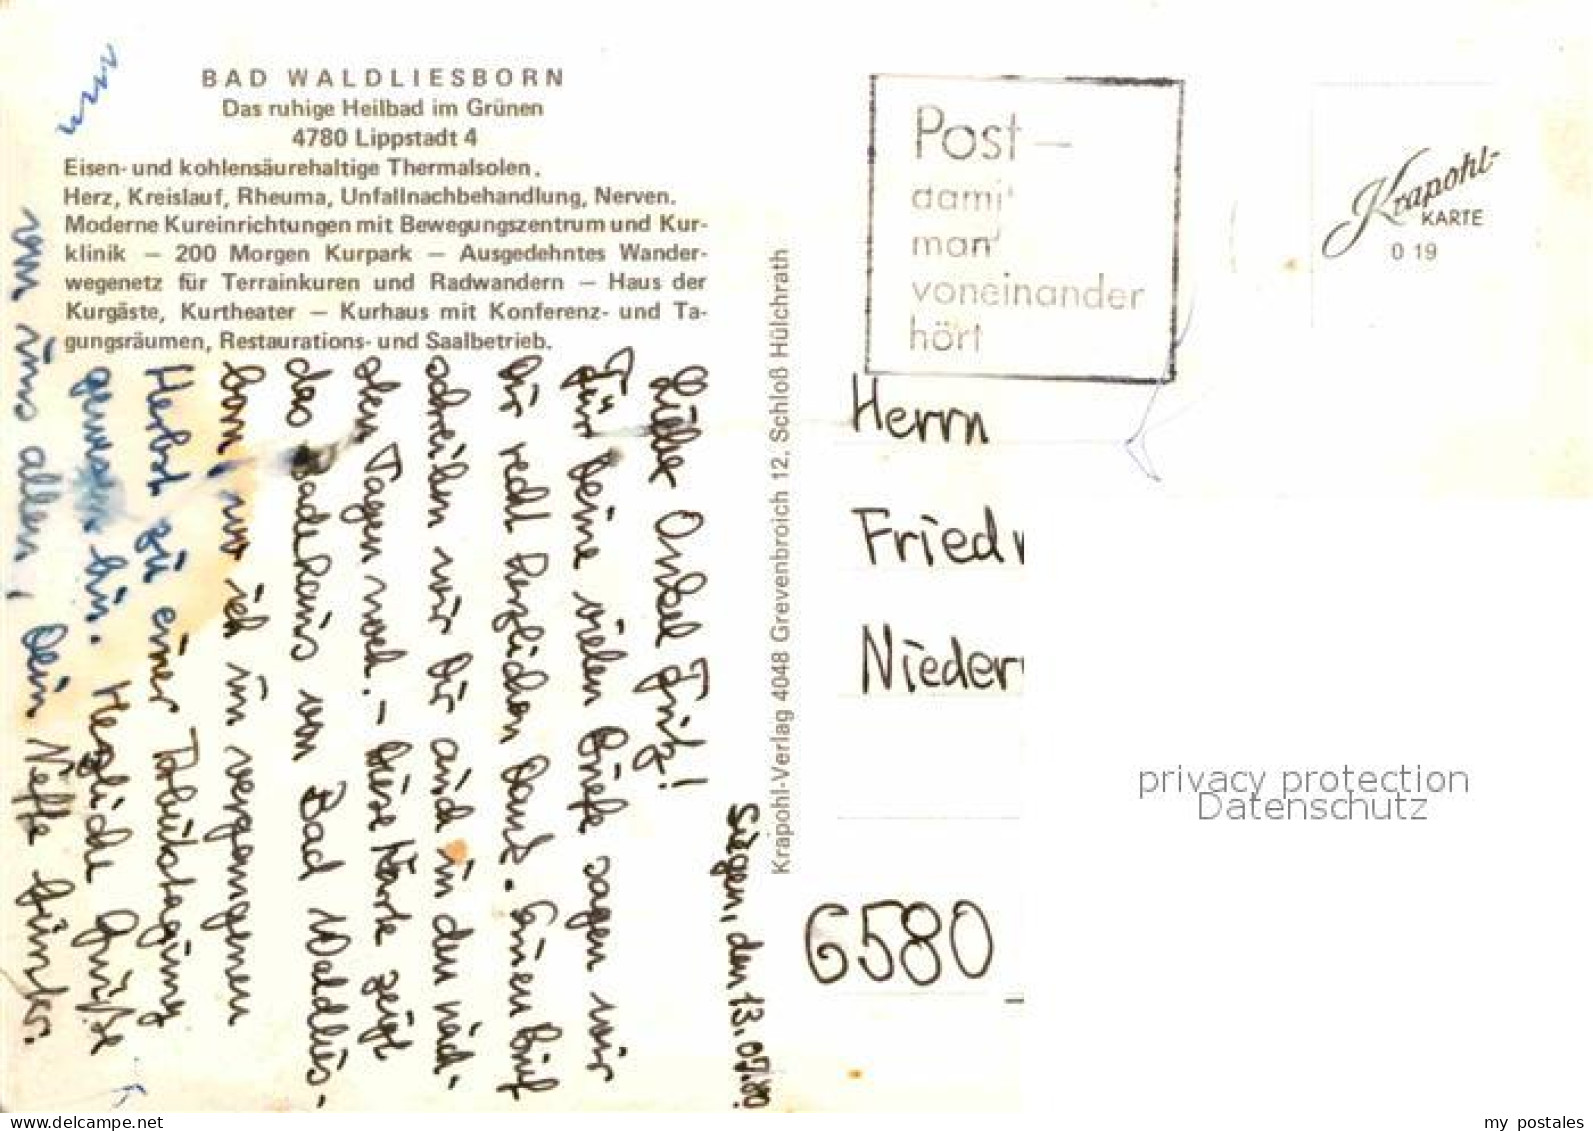 BAD WALDLIESBORN
Das ruhige Heilbad im Grünen
4780 Lippstadt 4
Eisen- und kohlensäurehaltige Thermalsolen.
Herz, Kreislauf, Rheuma, Unfallnachbehandlung, Nerven.
Moderne Kureinrichtungen mit Bewegungszentrum und Kur-
klinik — 200 Morgen Kurpark — Ausgedehntes Wander-
wegenetz für Terrainkuren und Radwandern — Haus der
Kurgäste, Kurtheater — Kurhaus mit Konferenz- und Ta-
gungsräumen, Restaurations- und Saalbetrieb.
Siegen, den 13.07.80.
Lieber Onkel Fritz!
Für Deine vielen Briefe sagen wir
Dir recht herzlichen Dank. Einen Brief
schreiben wir Dir auch in den näch-
sten Tagen noch. - Diese Karte zeigt
das Badehaus von Bad Waldlies-
born, wo ich im vergangenen
Herbst zu einer Tagung
gewesen bin. Herzliche Grüße
von uns allen, Dein Neffe Günter.
Krapohl-Verlag 4048 Grevenbroich 12, Schloß Hülchrath
Post —
damit
man
voneinander
hört
Krapohl-
KARTE
0 19
Herrn
Fried
Nieder
6580
privacy protection
Datenschutz
www.delcampe.net
my_postales